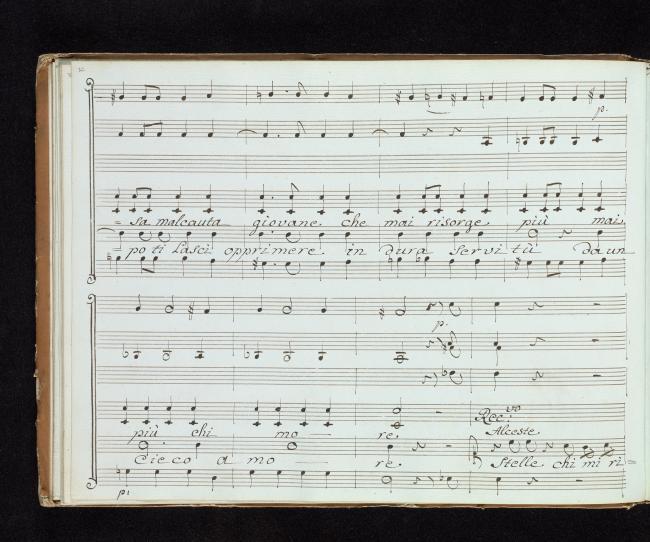 p.
= sa malcauta giovane. che mai risorge. più mai,
= po ti lasci opprimere. in dura servitù da un
p.
più chi mo — re.
Rec.vo
Alceste.
cieco a mo — re.
Stelle chi mi ri =
p: